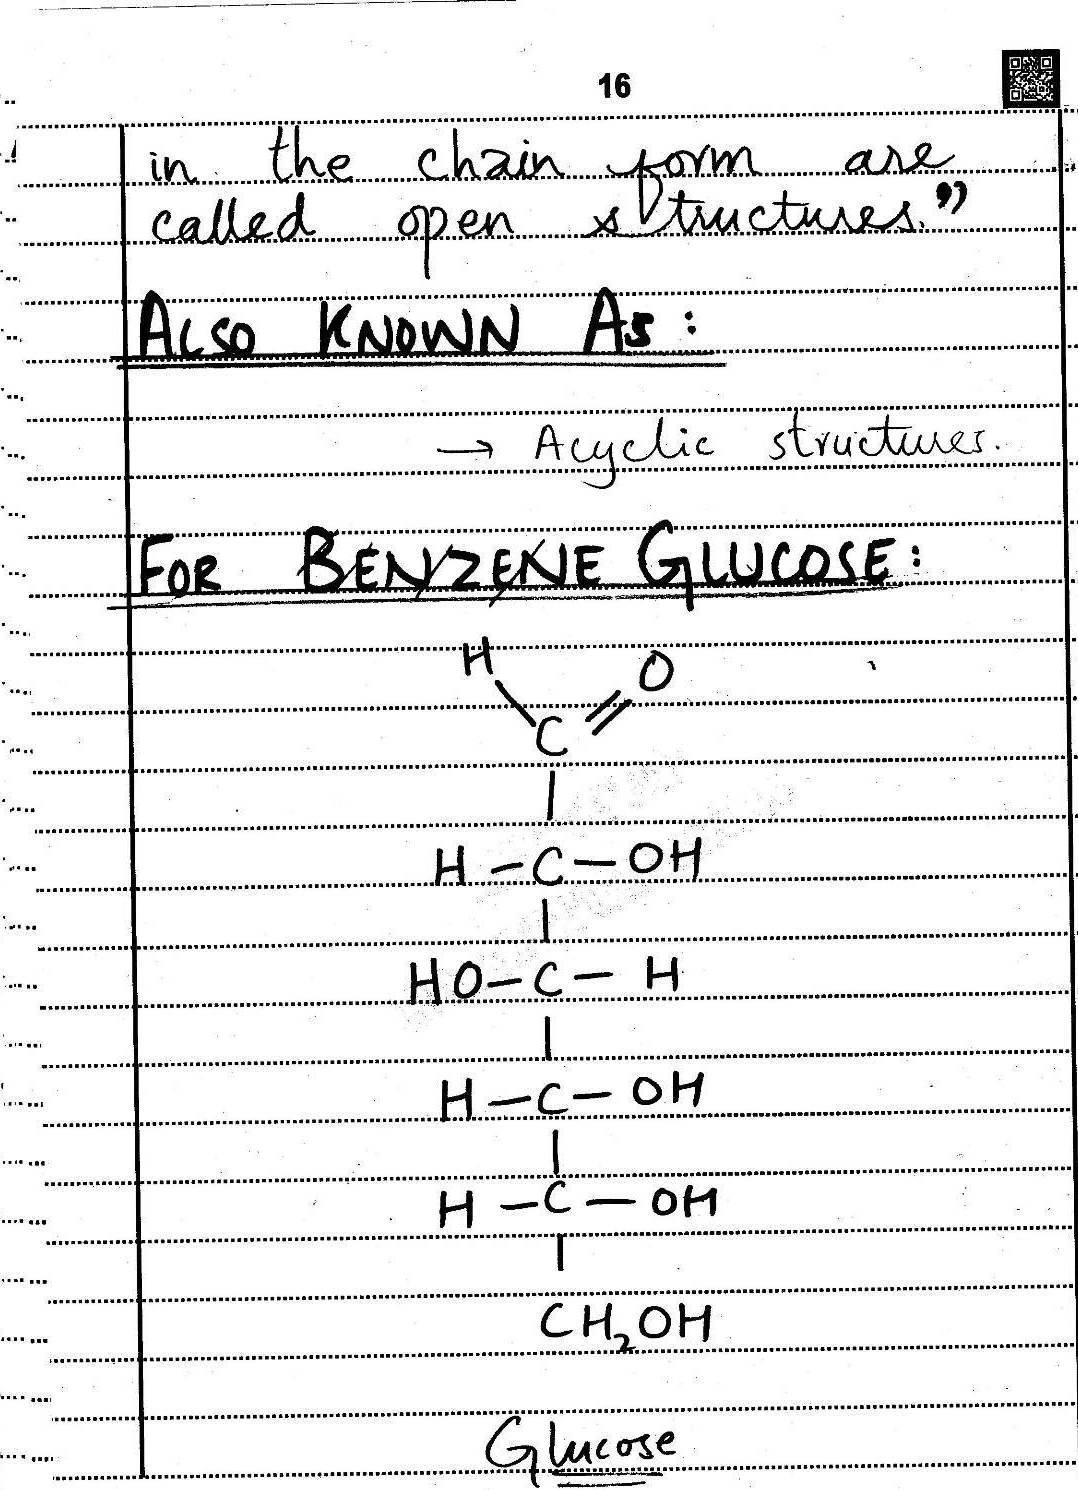 16
in the chain form are
called open structures.”
ALSO KNOWN AS:
→ Acyclic structures.
FOR BENZENE GLUCOSE:
H O
C
H-C-OH
HO-C-H
H-C-OH
H-C-OH
CH₂OH
Glucose